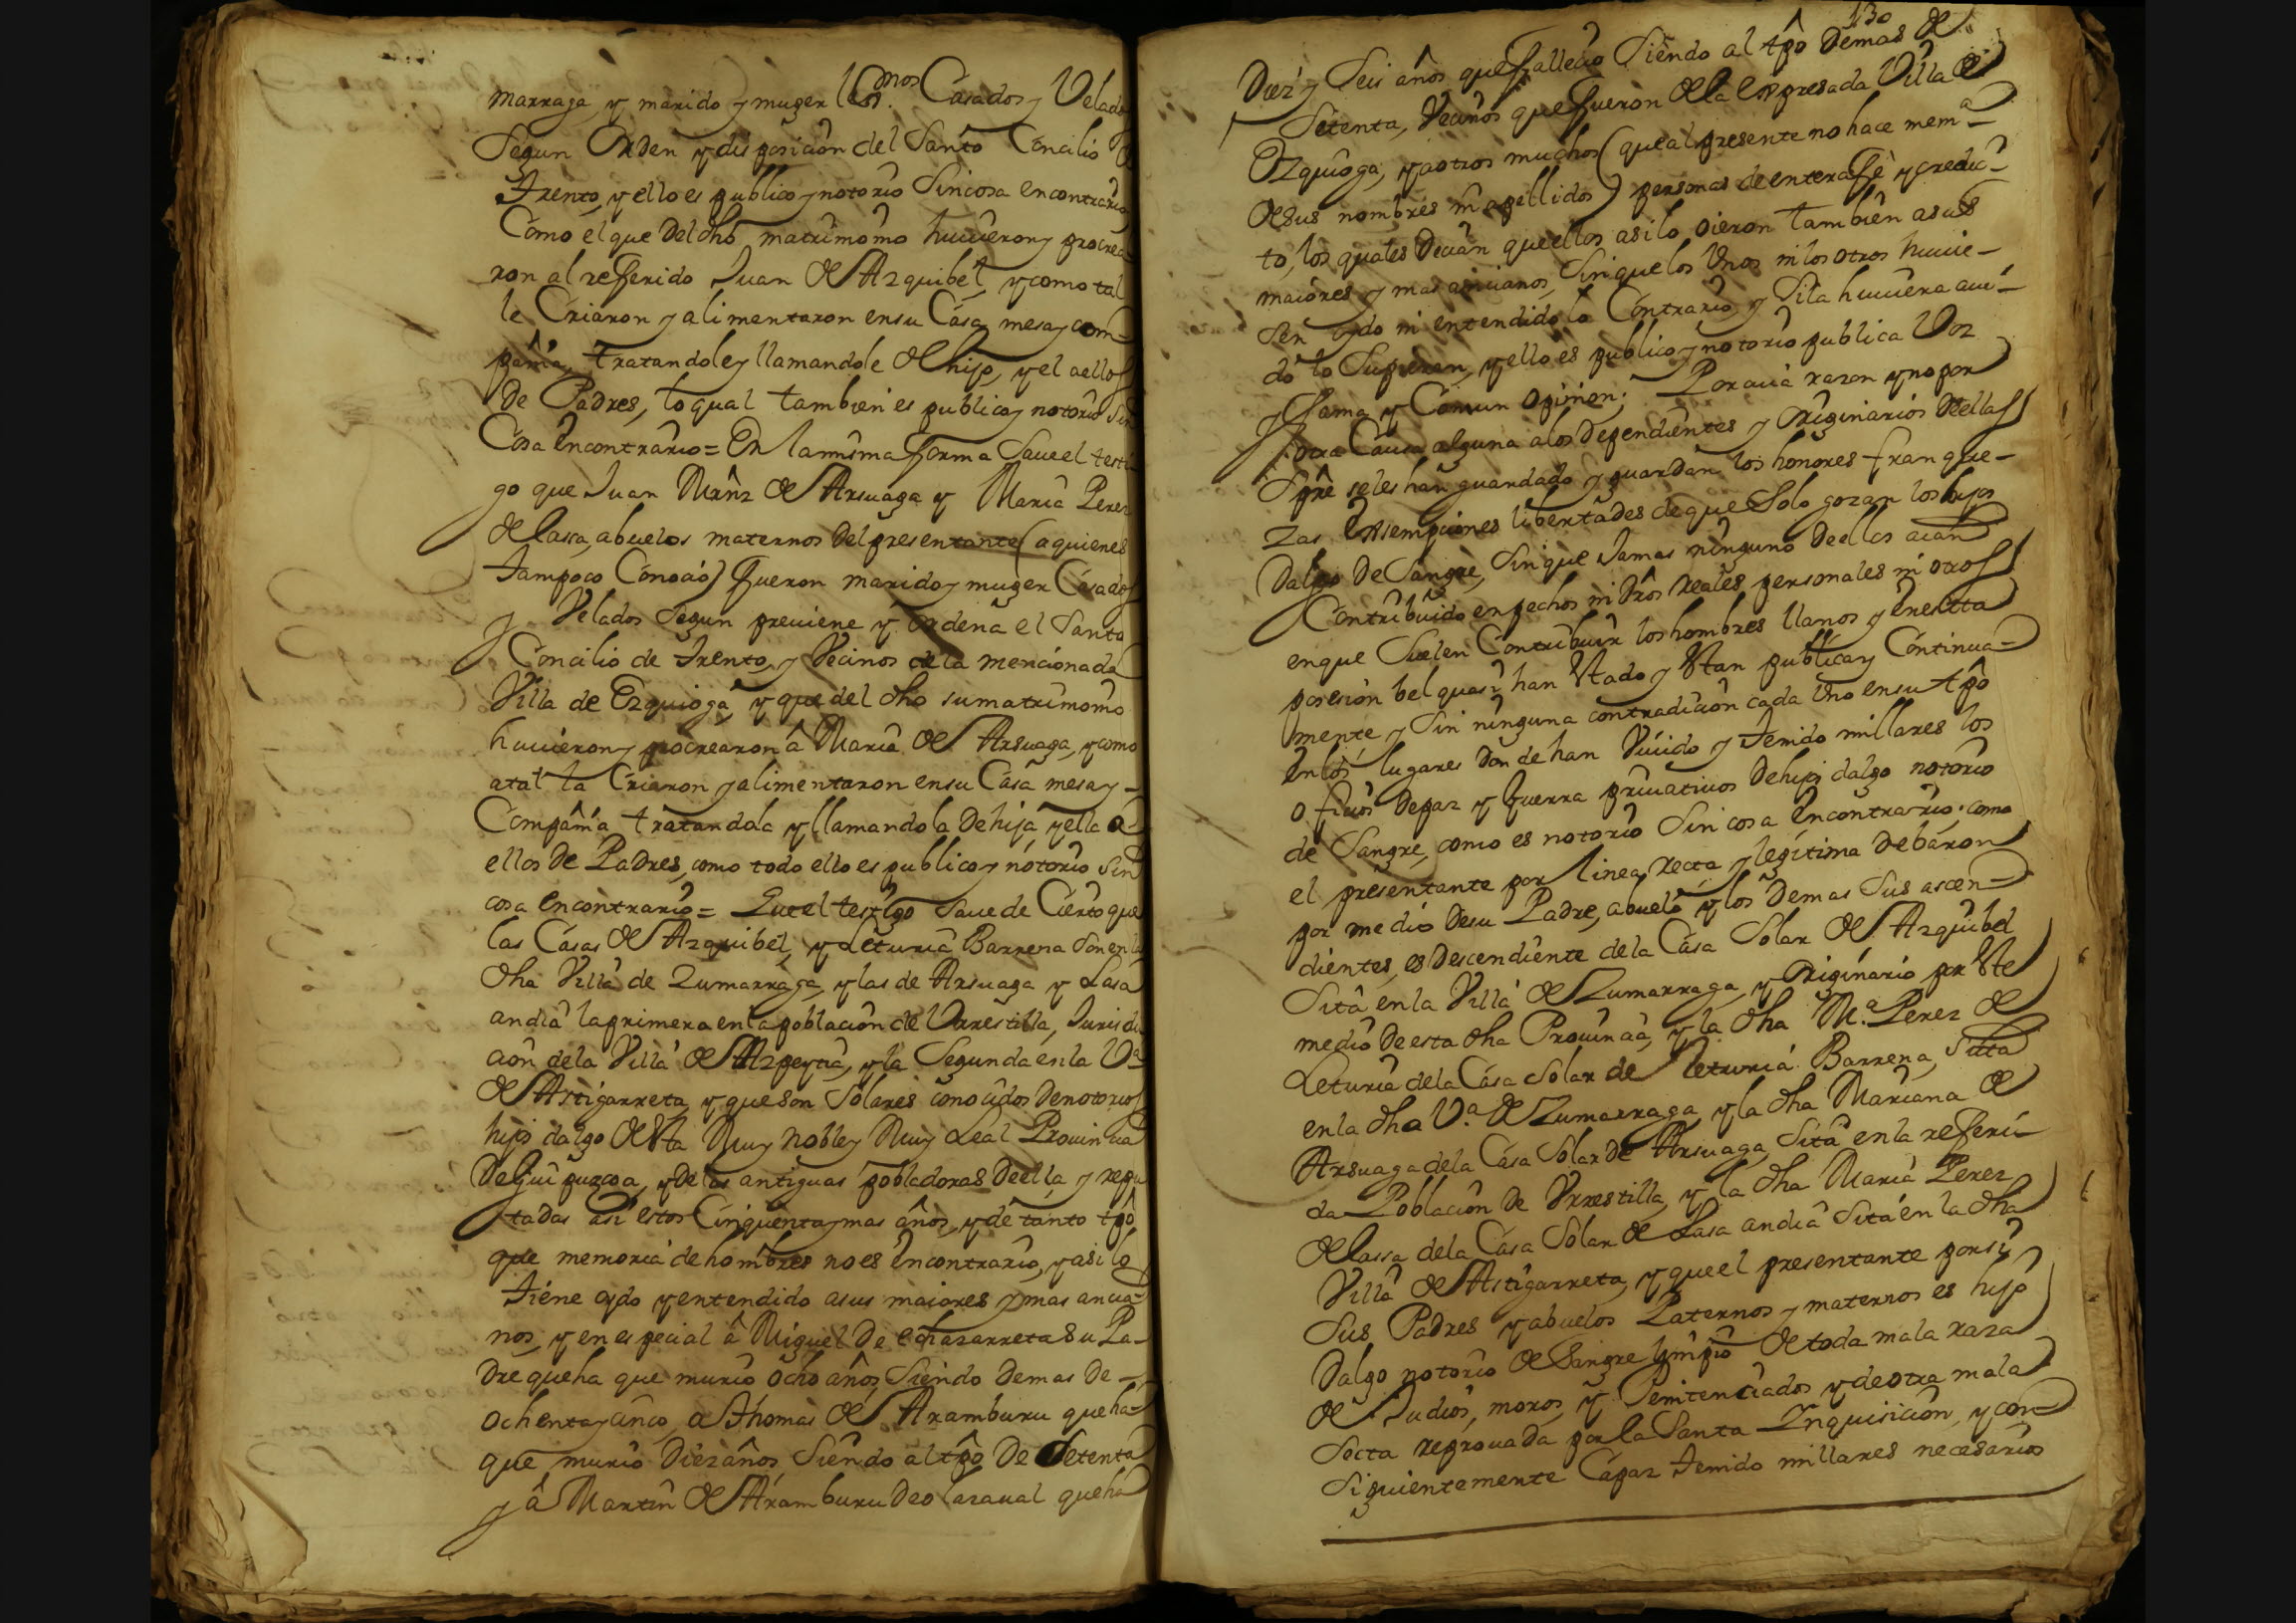 marraga, y marido y muger lexmos Casados y Velados
Segun Orden y disposicion del Santo Concilio de
Trento, y ello es publico y notorio Sincosa encontrario
Como el que del dho matrimonio huuieron y procrea-
ron al referido Juan de Azquibel, y como tal
le Criaron y alimentaron ensu Casa mesa y com-
pañia, tratandole y llamandole de hijo, y el aellos
de Padres, lo qual tambien es publico y notorio sin
Cosa encontrario = En lamisma forma Saue el testi-
go que Juan Mrñz de Arsuaga y Maria Perez
de lassa, abuelos maternos del presentante (aquienes
tampoco Conocio) fueron marido y muger Casados
y Velados Segun preuiene y ordena el Santo
Concilio de Trento, y Vecinos de la mencionada
Villa de Ezquioga, y que del dho sumatrimonio
huuieron y procrearon â Maria de Arsuaga, y como
atal la Criaron y alimentaron ensu Casa mesa y-
Compañia tratandola y llamandola de hija y ella a
ellos de Padres, como todo ello es publico y notorio sin
cosa encontrario = Que el testigo Saue de Cierto que
las Casas de Azquibel, y Leturia Barrena Son en la
dha Villa de Zumarraga, y las de Arsuaga y Lasa
andia la primera en la poblacion de Urrestilla, Jurisdi-
cion de la Villa de Azpeytia, y la Segunda en la Va
de Astigarreta, y queson Solares conocidos denotorios
hijos dalgo de esta Muy Noble y Muy Leal Prouincia
de Guipuzcoa, y de las antiguas pobladoras de ella, y repu
tadas asi estos Cinquenta y mas años, y de tanto tpô
que memoria de hombres no es encontrario, y asi lo
tiene oydo y entendido asus maiores y mas ancia-
nos, y en especial â Miguel de echazarreta Su Pa-
dre queha que murio ocho años, Siendo demas de-
ochenta y cinco, a Thomas de Aramburu que ha-
que murio Diez años Siendo al tpô de Setenta
y â Martin de Aramburu de olazaual que ha
130
Diez y Seis años que falleciò Siendo al tpô demas de
Setenta, Vecinos que fueron de la expresada Villa de
Ezquioga, y a otros muchos (que al presente no hace mema
de sus nombres ni apellidos) personas de entera fè y credi-
to, los quales decian que ellos asilo oieron tambien asus
maiores y mas ancianos, Sin que los Unos nilos otros huuie-
sen oydo ni entendido lo Contrario, y Sila huuiera aui-
do lo Supieran, y ello es publico y notorio publica Voz
y fama y Comun Opinion; Por cuia razon y no por
otra Causa alguna alos dependientes y originarios de ellas
Spre seles han guardado y guardan los honores franque-
zas exsempciones libertades de que Solo gozan los hijos
Dalgo de Sangre, Sin que Jamas ninguno de ellos aian
Contribuido en pechos ni dros reales personales ni otros
enque Suelen Contribuir los hombres llanos y en esta
posesion bel quasi han Estado y Estan publica y Continua-
mente y Sin ninguna contradicion cada Uno en su tpô
en los lugares donde han Viuido y Tenido millares los
oficios de paz y guerra priuatiuos de hijos dalgo notorio
de Sangre, como es notorio Sin cosa encontrario; como
el presentante por linea recta y legitima de baron
por medio de su Padre, abuelo y los demas Sus ascen-
dientes, es descendiente de la Casa Solar de Azquibel
Sita en la Villa de Zumarraga, y originario por este
medio de esta dha Prouincia, y la dha Ma. Perez de
Leturia de la Casa Solar de Leturia Barrena, Sitta
en la dha Va. de Zumarraga, y la dha Mariana de
Arsuaga de la Casa Solar de Arsuaga, Sita en la referi-
da Poblacion de Vrrestilla, y la dha Maria Perez
de lassa de la Casa Solar de Lasa andia Sita en la dha
Villa de Astigarreta, y que el presentante por sî
Sus Padres y abuelos Paternos y maternos es hijo
Dalgo notorio de Sangre limpio de toda mala raza
de Judios, moros, y Penitenciados y de otra mala
Secta reprouada por la Santa Inquisicion, y con-
siguientemente Capaz Tenido millares necesarios